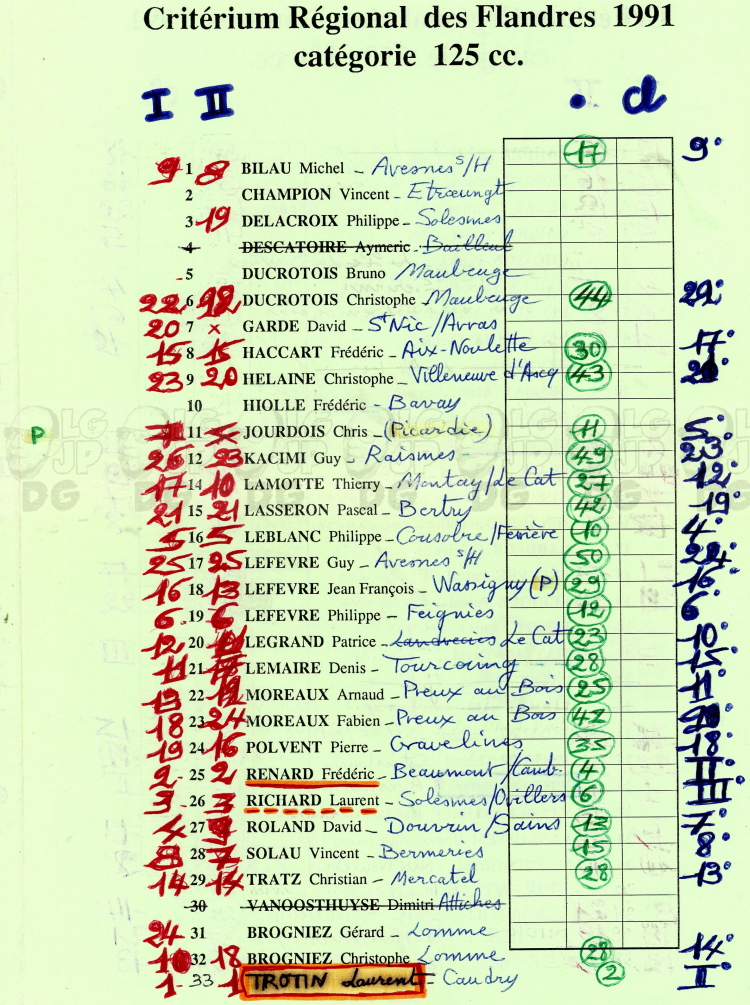 Critérium Régional des Flandres 1991
catégorie 125 cc.
I II • d
9 1 8 BILAU Michel - Avesnes s/H 17 9°
2 CHAMPION Vincent - Etrœungt
3 19 DELACROIX Philippe - Solesmes
4 DESCATOIRE Aymeric - Bailleul
5 DUCROTOIS Bruno Maubeuge
22 6 DUCROTOIS Christophe - Maubeuge 44
20 7 x GARDE David - St Nic/Arras
15 8 15 HACCART Frédéric - Aix-Noulette 30 17°
23 9 20 HELAINE Christophe - Villeneuve d'Ascq 43
10 HIOLLE Frédéric - Bavay
P 11 JOURDOIS Chris - (Picardie) 11 5°
26 12 23 KACIMI Guy - Raismes - 49 23°
17 14 10 LAMOTTE Thierry - Montay/Le Cat 27 12°
21 15 21 LASSERON Pascal - Bertry 42 19°
5 16 5 LEBLANC Philippe - Cousolre/Ferrière 10 4°
25 17 25 LEFEVRE Guy - Avesnes s/H 50
16 18 13 LEFEVRE Jean François - Wassigny (P) 29 16°
6 19 6 LEFEVRE Philippe - Feignies 12 6°
12 20 LEGRAND Patrice - Landrecies Le Cat 23 10°
11 21 LEMAIRE Denis - Tourcoing 28 15°
13 22 MOREAUX Arnaud - Preux au Bois 25 11°
18 23 24 MOREAUX Fabien - Preux au Bois 42
19 24 16 POLVENT Pierre - Gravelines 35 18°
2 - 25 2 RENARD Frédéric - Beaumont/Camb. 4
3 - 26 3 RICHARD Laurent - Solesmes/Ovillers 6 III
4 27 ROLAND David - Douvrin/Sains 13 7°
8 28 7 SOLAU Vincent - Bermeries 15 8°
14 29 14 TRATZ Christian - Mercatel 28 13°
30 VANOOSTHUYSE Dimitri Attiches
24 31 BROGNIEZ Gérard - Lomme
32 18 BROGNIEZ Christophe Lomme 28 14°
1 - 33 1 TROTIN Laurent - Caudry 2 I